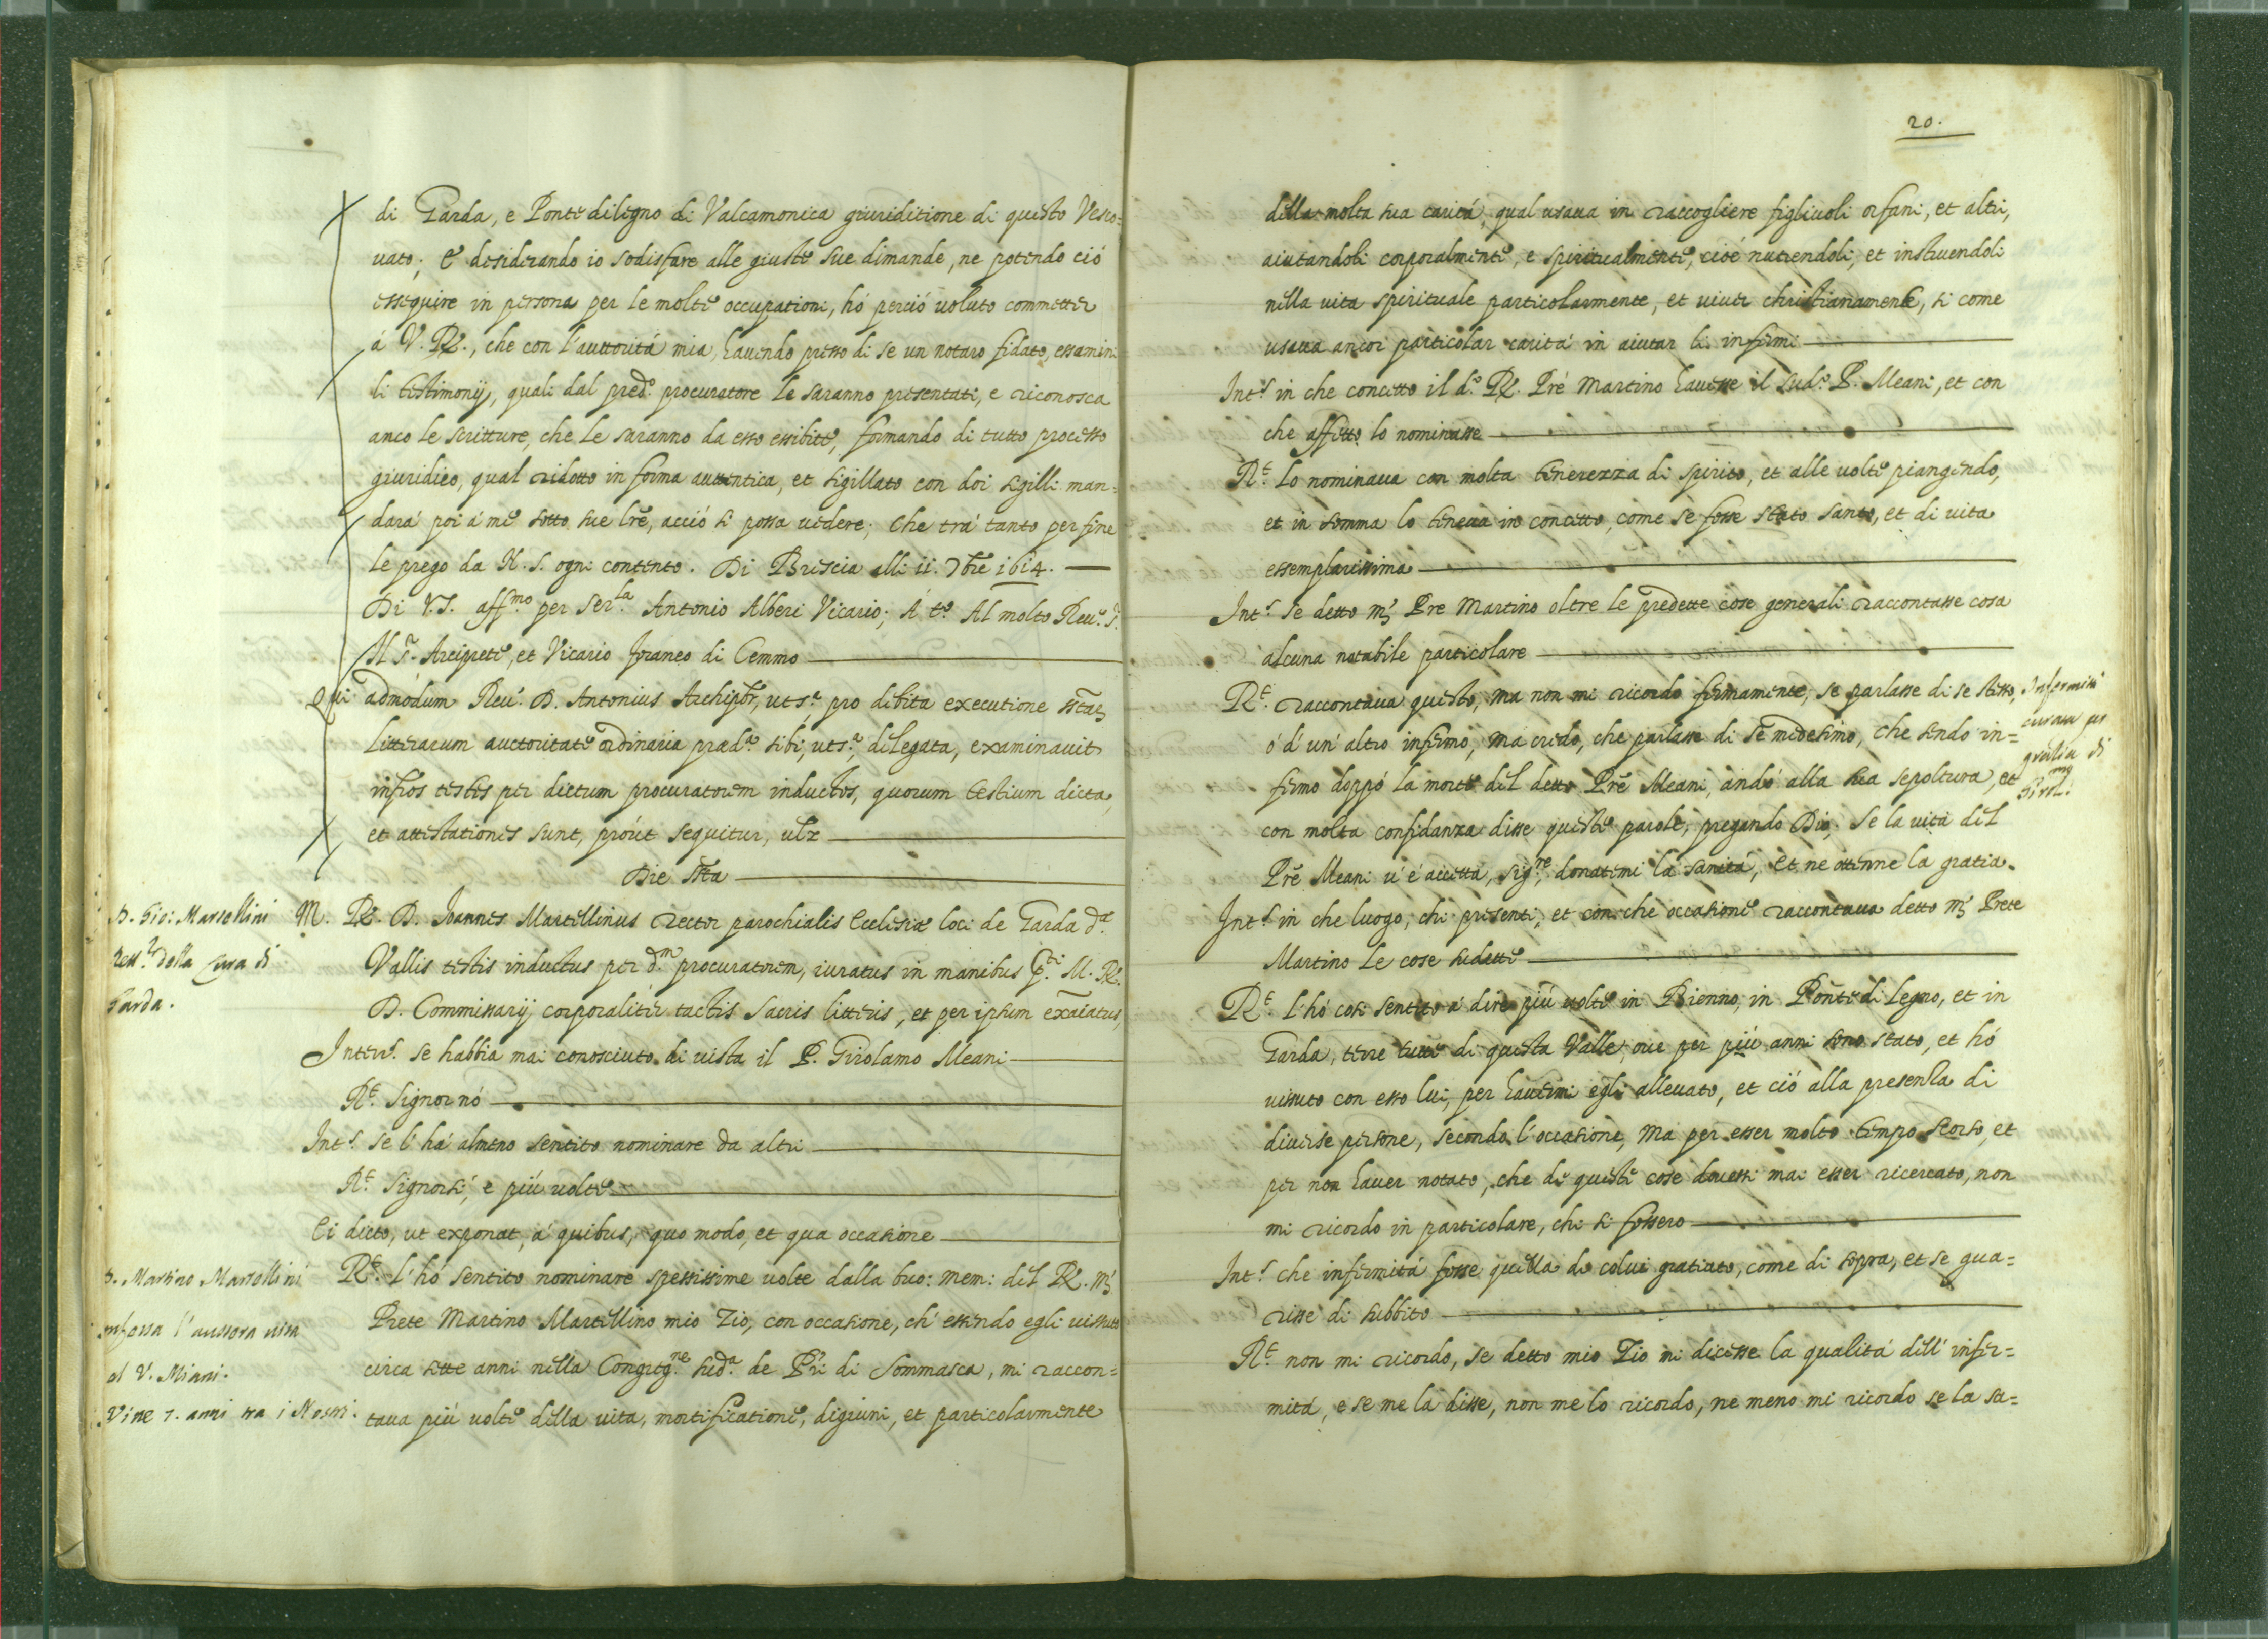 di Garda, e Ponte di legno di Valcamonica giuriditione di questo Vesco-
uato; E desiderando io sodisfare alle giuste sue dimande, ne potendo ció
essequire in persona per le molte occupationi, hó perció uoluto commetter
á V. R., che con l'auttoritá mia, hauendo presso di se un notaro fidato, essamini
li testimonij, quali dal pred.o procuratore le saranno presentati, e riconosca
anco le scritture, che le saranno da esso essibite, formando di tutto processo
giuridico, qual ridotto in forma auttentica, et sigillato con doi sigilli man-
dará poi á me sotto sue lre, acció si possa uedere; Che trá tanto per fine
le prego da N. S. ogni contento. Di Brescia alli ii. 7bre 1614.
Di V.S. aff.mo per ser.la Antonio Alberi Vicario; Á t.o Al molto Reu.
M. Arciprete, et Vicario foraneo di Cemmo
Qui admodum Reu. D. Antonius Archipbr, ut s.a pro debita executione
litterarum auctoritate ordinaria præd.a sibi, ut s.a, delegata, examinauit
infros testes per dictum procuratorem inductos, quorum testium dicta,
et attestationes sunt, próut sequitur, ulz
Die
P. Gio: Martellini
Rett.r della Cura di
Garda.
M. R. D. Joannes Martellinus rector parochialis Ecclesiæ loci de Garda d.a
Vallis testis inductus per d.m procuratorem, iuratus in manibus M. R.
D. Commissarij corporaliter tactis sacris litteris, et per ipsum exaiatus,
Interr. se habbia mai conosciuto di uista il P. Girolamo Meani
R.t Signor nó
Int. se l'há almeno sentito nominare da altri
R.t Signorsí, e piú uolte
Ei dicto, ut exponat, á quibus, quo modo, et qua occasione
P. Martino Martellini
l'austera uita
del V. Miani.
Visse 7. anni tra i Nostri.
R.t l'hó sentito nominare spessissime uolte dalla buo: mem: del R. M.
Prete Martino Martellino mio Zio, con occasione, ch'essendo egli uissuto
circa sette anni nella Congreg.ne sud.a de Pri di Sommasca, mi raccon-
taua piú uolte della uita, mortificatione, digiuni, et particolarmente
20.
della molta sua caritá, qual usaua in raccogliere figliuoli orfani, et altri,
aiutandoli corporalmente, e spiritualmente, cioé nutrendoli, et instruendoli
nella uita spirituale particolarmente, et uiuer christianamente, si come
usaua ancor particolar caritá in aiutar li infermi
Int. in che concetto il d.o R. Pré Martino hauesse il sud.o P. Meani, et con
che affetto lo nominasse
R.t Lo nominaua con molta tenerezza di spirito, et alle uolte piangendo,
et in somma lo teneua in concetto, come se fosse stato santo, et di uita
essemplarissima
Int. se detto m. Pre Martino oltre le predette cose generali raccontasse cosa
alcuna notabile particolare
R.t raccontaua questo, ma non mi ricordo fermamente, se parlasse di se stesso,
ó d'un'altro infermo, má credo, che parlasse di se medesimo, che sendo in-
fermo doppó la morte del detto Pré Meani, andó alla sua sepoltura, et
con molta confidanza disse queste parole, pregando Dio, Se la uita del
Pré Meani u'é accetta, sig.re, donatemi la sanitá, et ne ottenne la gratia.
Infermitá
curata per
gratia di
Girol.mo
Int. in che luogo, chi presenti, et con che occasione raccontaua detto m. Prete
Martino le cose sudette
R.t l'hó cosi sentito á dire piú uolte in Bienno, in Ponte di legno, et in
Garda, terre tutte di questa Valle, oue per piú anni sono stato, et hó
uissuto con esso lui, per hauermi egli alleuato, et ció alla presenza di
diuerse persone, secondo l'occasione, Ma per esser molto tempo scorso, et
per non hauer notato, che di queste cose douessi mai esser ricercato, non
mi ricordo in particolare, chi si fossero
Int. che infermitá fosse quella di colui gratiato, come di sopra, et se gua-
risse di subbito
R.t non mi ricordo, se detto mio Zio mi dicesse la qualitá dell'infer-
mitá, e se me la disse, non me lo ricordo, ne meno mi ricordo se la sa-